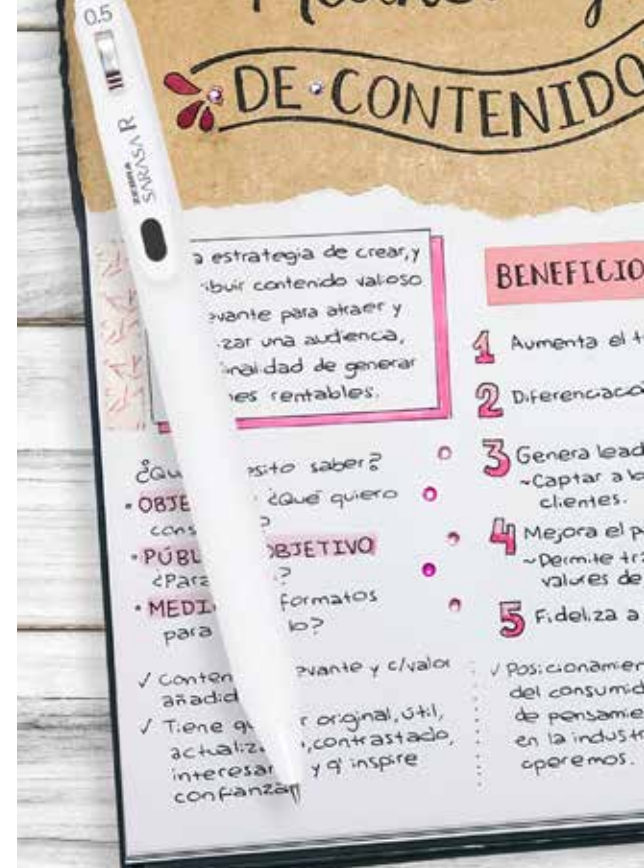 0.5
ZEBRA
SARASA R
DE CONTENIDO
a estrategia de crear, y
ibuir contenido valioso
evante para atraer y
zar una audienca,
inalidad de generar
nes rentables.
¿Qu esito saber?
• OBJE ¿Qué quiero
cons ?
• PÚBL OBJETIVO
¿Para ?
• MEDI formatos
para lo?
✓ Conten evante y c/valor
añadid
✓ Tiene q r original, útil,
actualiz , contrastado,
interesan y q' inspire
confianza
BENEFICIO
1 Aumenta el t
2 Diferenciac
3 Genera lead
~Captar a lo
clientes.
4 Mejora el p
~Permite tra
valores de
5 Fideliza a
✓ Posicionamien
del consumid
de pensamie
en la industr
operemos.